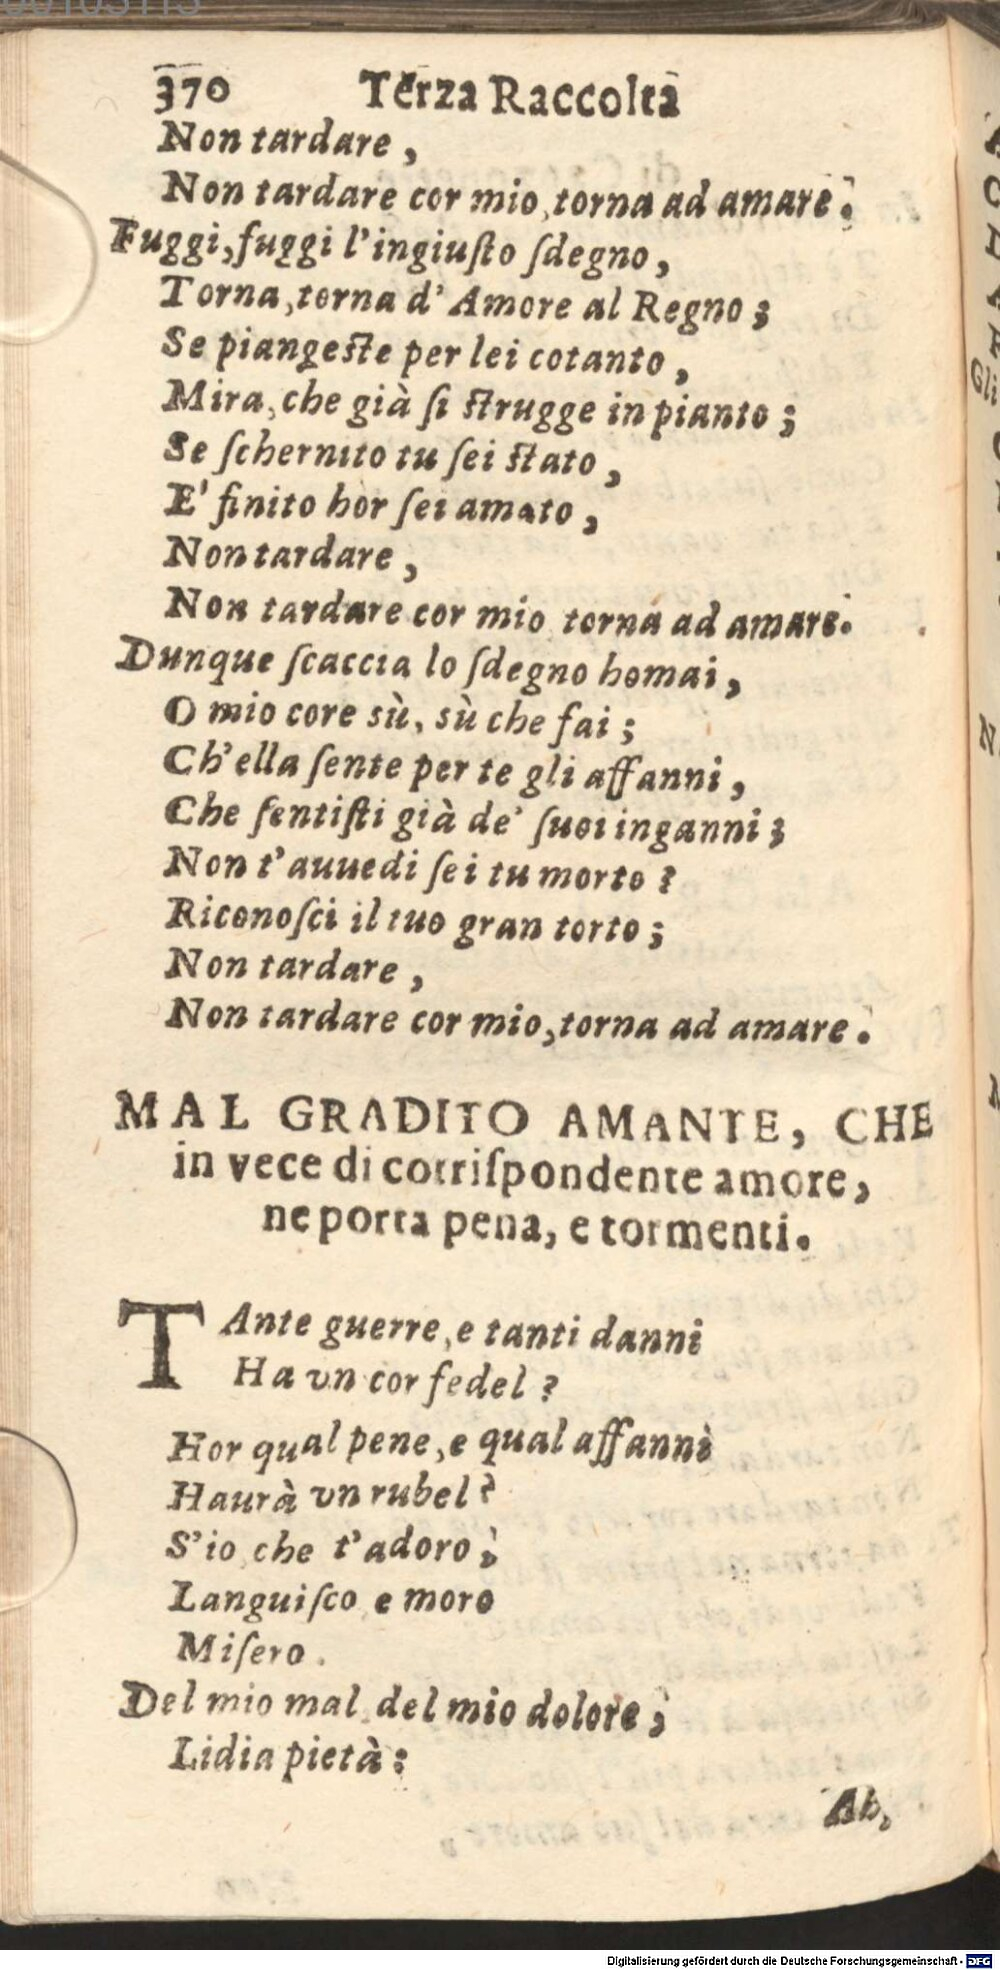 370 Terza Raccolta
Non tardare,
Non tardare cor mio, torna ad amare.
Fuggi, fuggi l'ingiuſto ſdegno,
Torna, torna d'Amore al Regno;
Se piangeſte per lei cotanto,
Mira, che già ſi ſtrugge in pianto;
Se ſchernito tu ſei ſtato,
E' finito hor ſei amato,
Non tardare,
Non tardare cor mio torna ad amare.
Dunque ſcaccia lo ſdegno homai,
O mio core sù, sù che fai;
Ch'ella ſente per te gli affanni,
Che ſentiſti già de' ſuoi inganni;
Non t'auuedi ſei tu morto?
Riconoſci il tuo gran torto;
Non tardare,
Non tardare cor mio, torna ad amare.
MAL GRADITO AMANTE, CHE
in vece di corriſpondente amore,
ne porta pena, e tormenti.
TAnte guerre, e tanti danni
Ha vn cor fedel?
Hor qual pene, e qual affanni
Haurà vn rubel?
S'io, che t'adoro;
Languiſco, e moro
Miſero.
Del mio mal, del mio dolore;
Lidia pietà:
Ah,
Digitalisierung gefördert durch die Deutsche Forschungsgemeinschaft - DFG